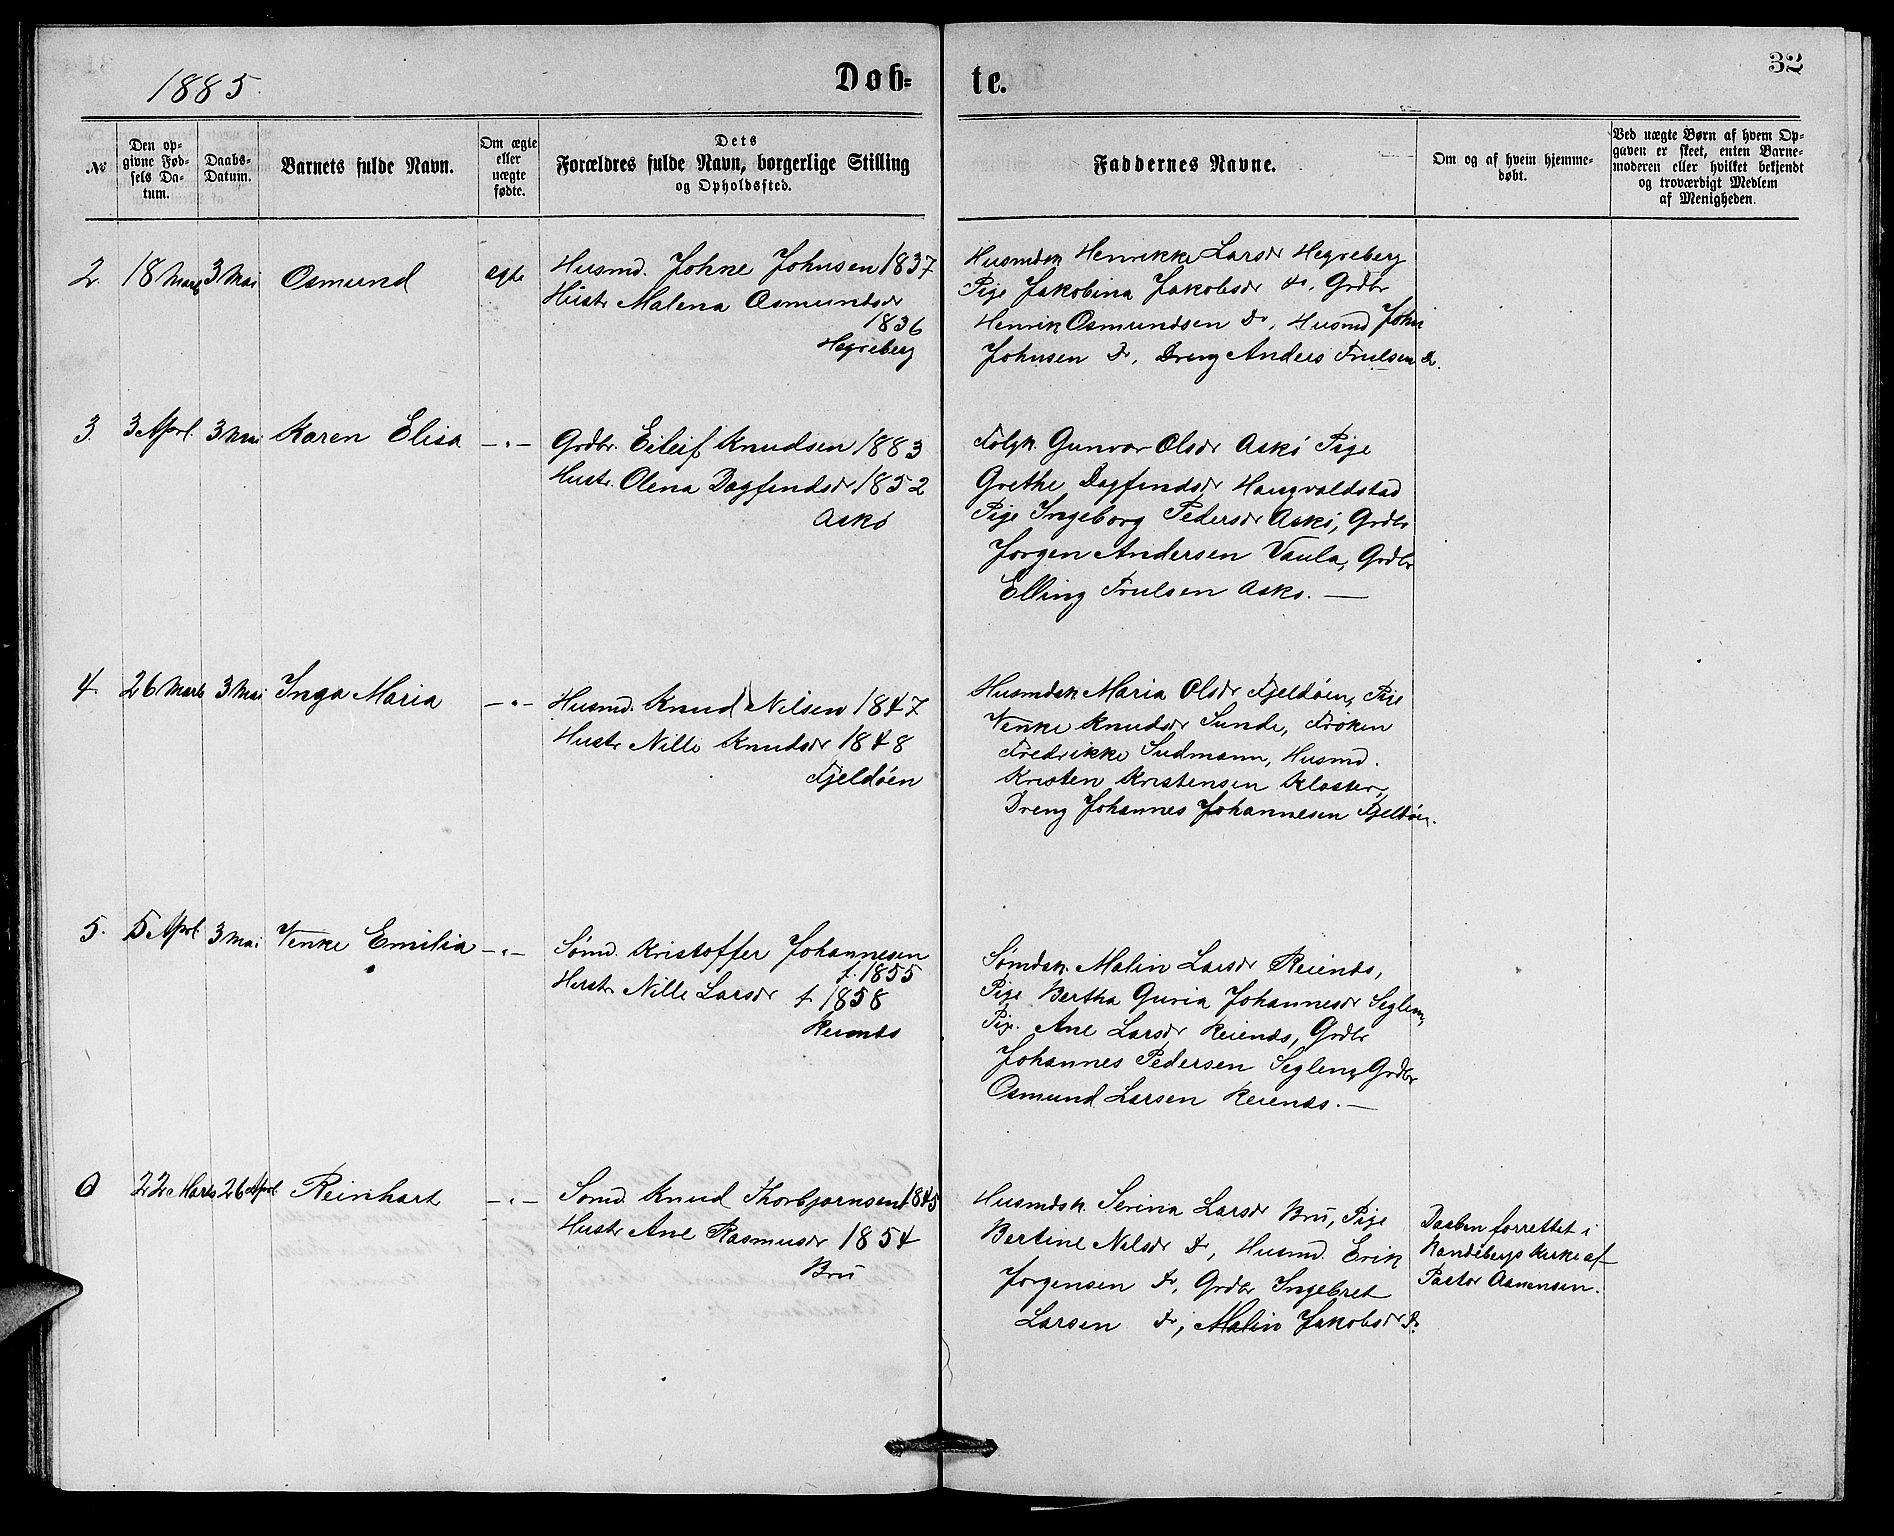 1885.
Døb-
te.
32
№
Den op-
givne Fød-
sels Da-
tum.
Daabs-
Datum.
Barnets fulde Navn.
Om ægte
eller
uægte
fødte.
Dets
Forældres fulde Navn, borgerlige Stilling
og Opholdssted.
Faddernes Navne.
Om og af hvem hjemme-
døbt.
Ved uægte Børn af hvem Op-
gaven er skeet, enten Barne-
moderen eller hvilket bekjendt
og troværdigt Medlem
af Menigheden.
2. 18 Marts 3 Mai Osmund ægte
Husmd. Johne Johnsen 1837
Hustr Malena Osmundsdr
1836
Hegreberg
Husmdsk Henrikke Larsdr Hegreberg
Pige Jakobina Jakobsdr do, Grdbr
Henrik Osmundsen Do, Husmd John
Johnsen Do, Dreng Anders Trulsen Do.
3. 3 Aprl. 3 Mai Karen Elisa -"-
Grdbr. Eileif Knudsen 1883
Hustr. Olena Dagfindsdr 1852
Askø
Folgk. Gunvor Olsdr Askø Pige
Grethe Dagfindsdr Haugvaldstad
Pige Ingeborg Pedersdr Askø, Grdbr
Jorgen Andersen Vaula, Grdbr
Elling Trulsen Askø. —
4. 26 Marts 3 Mai Inga Maria -"-
Husmd. Knud Nilsen 1847
Hustr Nille Knudsdr 1848
Fjeldøen
Husmdsk Maria Olsdr Fjeldøen, Pige
Venke Knudsdr Sunde, Frøken
Fredrikke Sudmann, Husmd.
Kristen Kristensen Kloster,
Dreng Johannes Johannesen Fjeldøen.
5. 5 Aprl 3 Mai Venke Emilia -"-
Sømd. Kristoffer Johannesen
f. 1855
Hustr Nille Larsdr f. 1858
Reienes
Sømdsk. Malin Larsdr Reienes,
Pige Bertha Guria Johannesdr Seglem,
Pige. Ane Larsdr Reienes, Grdbr
Johannes Pedersen Seglem, Grdbr
Osmund Larsen Reienes. —
6 22 Marts 26 Aprl Reinhart -"-
Sømd. Knud Thorbjornsen 1845
Hustr Ane Rasmusdr 1854
Bru
Husmdsk. Serina Larsdr Bru, Pige
Bertine Nilsdr Do, Husmd. Erik
Jorgensen Do, Grdbr Ingebret
Larsen Do, Malin Jakobsdr Do.
Daaben forrettet i
Randebergs Kirke af
Pastor Asmensen.